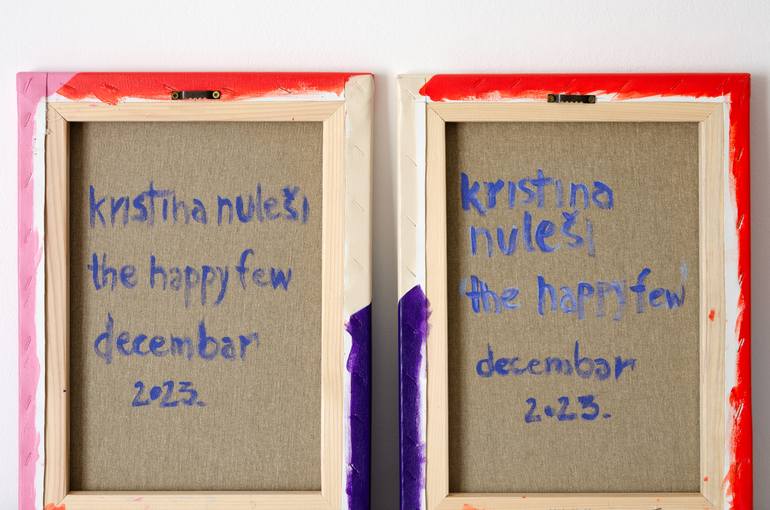 kristina nuleši
the happy few
decembar
2023.
kristina
nuleši
'the happy few'
decembar
2023.